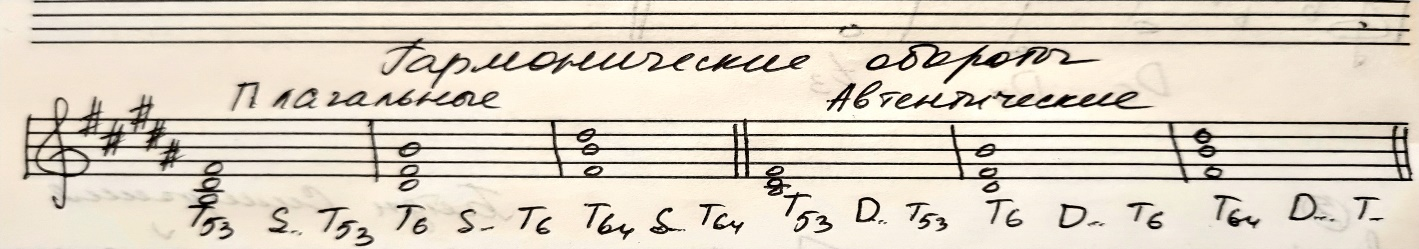 Гармонические обороты
Плагальные Автентические
T53 S.. T53 T6 S.. T6 T64 S... T64 T53 D.. T53 T6 D... T6 T64 D... T..